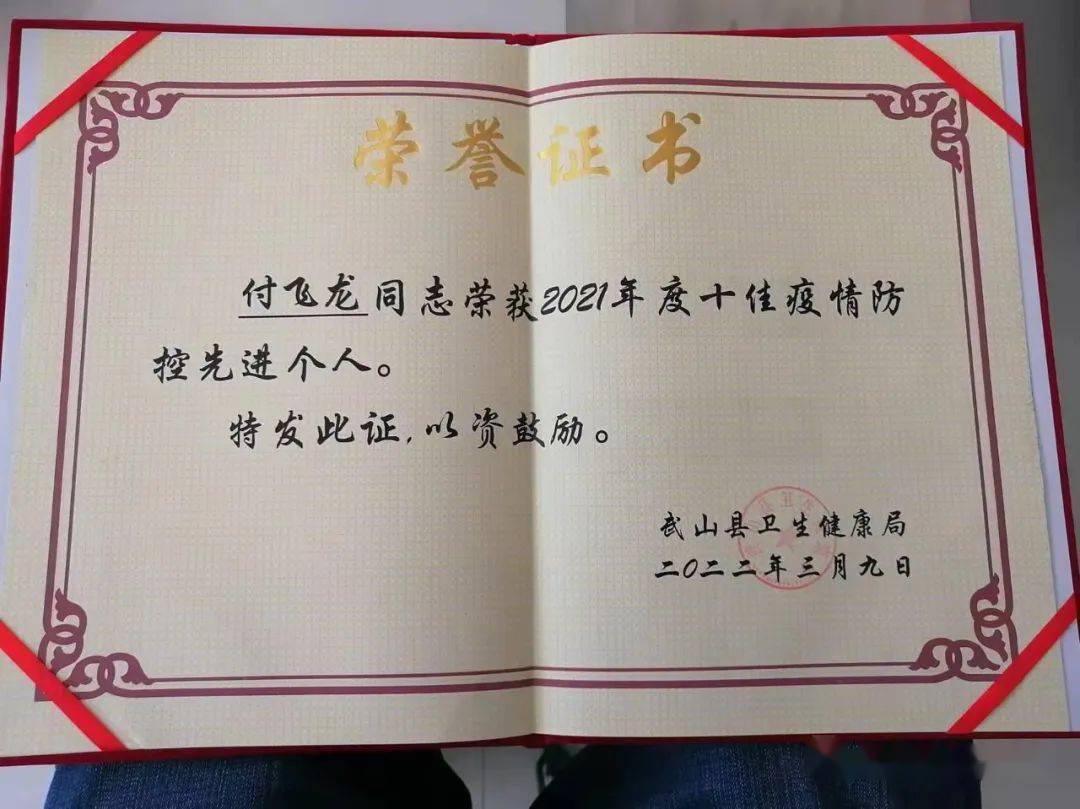 荣誉证书
付飞龙同志荣获2021年度十佳疫情防
控先进个人。
特发此证,以资鼓励。
武山县卫生健康局
二〇二二年三月九日